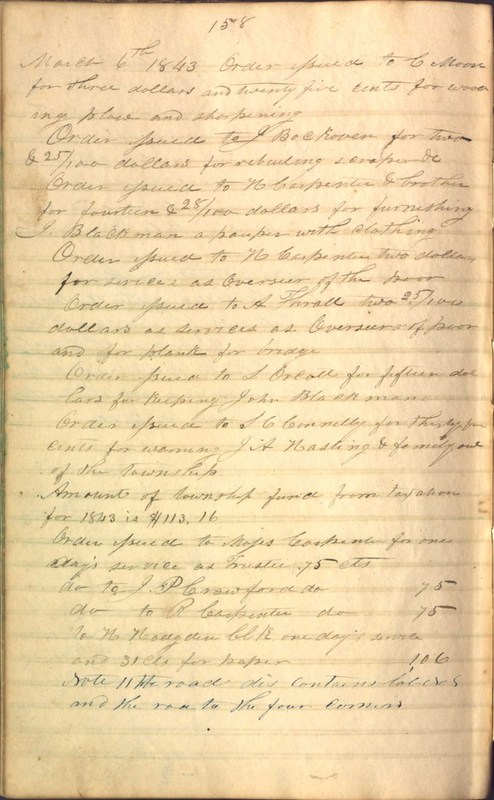 158
March 6th 1843 Order issued to C Moon
for three dollars and twenty five cents for wood
ing plow and sharpening
Order issued to J Bockoven for two
& 25/100 dollars for rebuilding scraper &c
Order issued to N Carpenter & brother
for fourteen & 28/100 dollars for furnishing
J. Blackman a pauper with clothing
Order issued to N Carpenter two dollars
for services as Overseer of the poor
Order issued to A Thrall two 25/100
dollars as services as Overseer of poor
and for plank for bridge
Order issued to S for fifteen dol
lars for keeping John Blackman
Order issued to S C Connelly for thirty
cents for warning J A & family out
of the Township
Amount of township fund from taxation
for 1843 is $113.16
Order issued to Moses Carpenter for one
day's service as Trustee 75 cts
do to J. P Crawford do 75
do to R Carpenter do 75
to H Clk one day's service
and 31 cts for paper 1,06
Note 11th road dis contains
and the road to the four corners